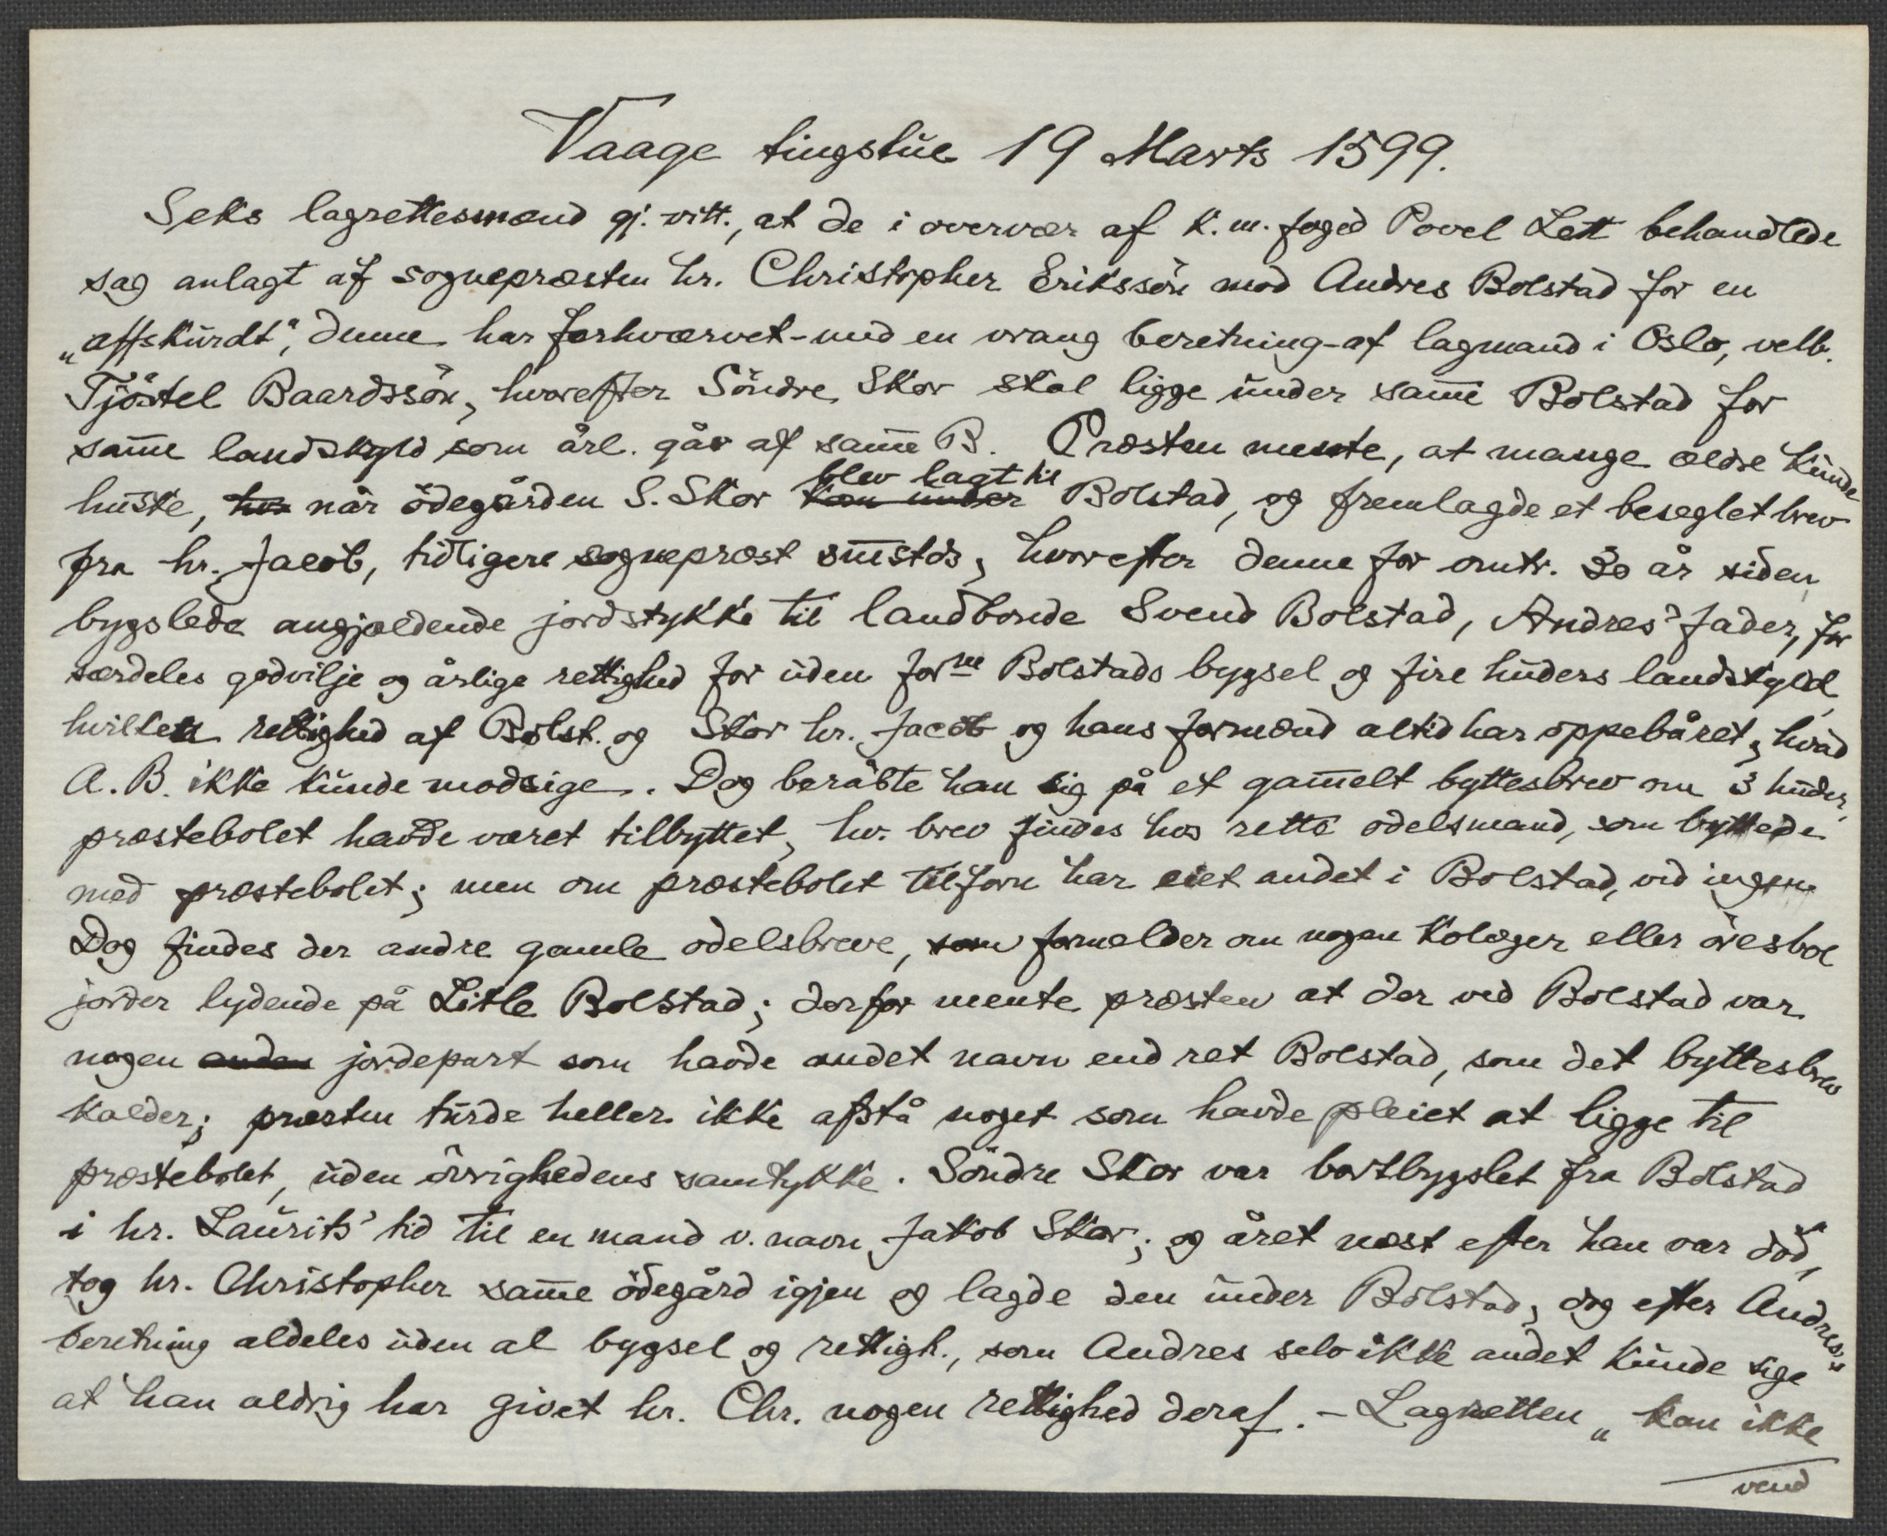 Vaage tingstue 19 Marts 1599.
Seks lagrettesmænd gj. vitt., at de i overvær af k. m. foged Povel Lett behandlede
sag anlagt af sognepræsten hr. Christopher Erikssön mod Andres Bolstad for en
„affskurdt“, denne har forhværvet - med en vrang beretning - af lagmand i Oslo, velb.
Tjöstel Baardssön, hvorefter Söndre Skor skal ligge under sam̄e Bolstad for
sam̄e landskyld som årl. går af sam̄e B. Præsten mente, at mange ældre kunde
huske, når ödegården S. Skor blev lagt til Bolstad, og fremlagde et beseglet brev
fra hr. Jacob, tidligere sognepræst sm̄stds, hvorefter denne for omtr. 30 år siden
bygslede angjældende jordstykke til landbonde Svend Bolstad, Andres' fader, for
særdeles godvilje og årlige rettighed for uden forne Bolstads bygsel og fire huders landskyld,
hvilken rettighed af Bolst. og Skor hr. Jacob og hans formænd altid har oppebåret, hvad
A. B. ikke kunde modsige. Dog beråbte han sig på et gam̄elt byttesbrev om 3 huder,
præstebolet havde været tilbyttet, hv. brev findes hos rette odelsmand, som byttede
med præstebolet; men om præstebolet tilforn har eiet andet i Bolstad, ved ingen
Dog findes der andre gamle odelsbreve, som formelder om nogen kolæger eller öresbol
jorder lydende på Litle Bolstad; derfor mente præsten at der ved Bolstad var
nogen jordepart som havde andet navn end ret Bolstad, som det byttesbrev
kalder; præsten turde heller ikke afstå noget som havde pleiet at ligge til
præstebolet, uden övrighedens samtykke. Söndre Skor var bortbygslet fra Bolstad
i hr. Laurits' tid til en mand v. navn Jakob Skor; og året næst efter han var död,
tog hr. Christopher sam̄e ödegård igjen og lagde den under Bolstad, dog efter Andres's
beretning aldeles uden al bygsel og rettigh., som Andres selv ikke andet kunde sige
at han aldrig har givet hr. Chr. nogen rettighed deraf. - Lagretten „kan ikke
vend